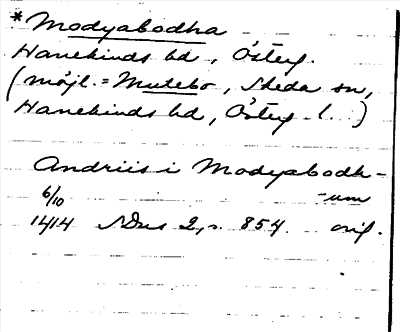 *Modyabodha
Hanekinds hd, Österg.
(möjl. = Mutebo, Skeda sn,
Hanekinds hd, Österg. l.)
Andriis i Modyabodh-
-um
6/10
1414 SDns 2, s. 854. orig.